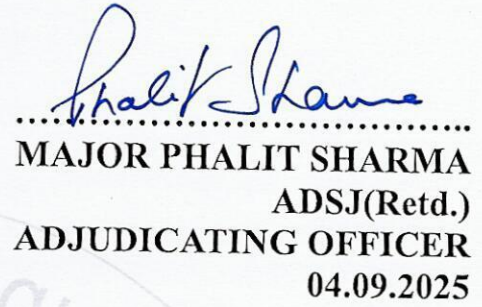 Phalit Sharma
MAJOR PHALIT SHARMA
ADSJ(Retd.)
ADJUDICATING OFFICER
04.09.2025